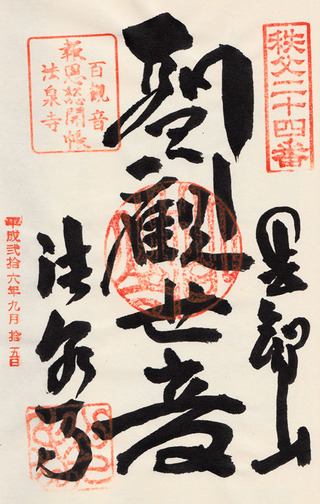 秩父二十四番
光智山
聖観世音
百観音
報恩総開帳
法泉寺
法泉寺
平成弐拾六年九月拾五日